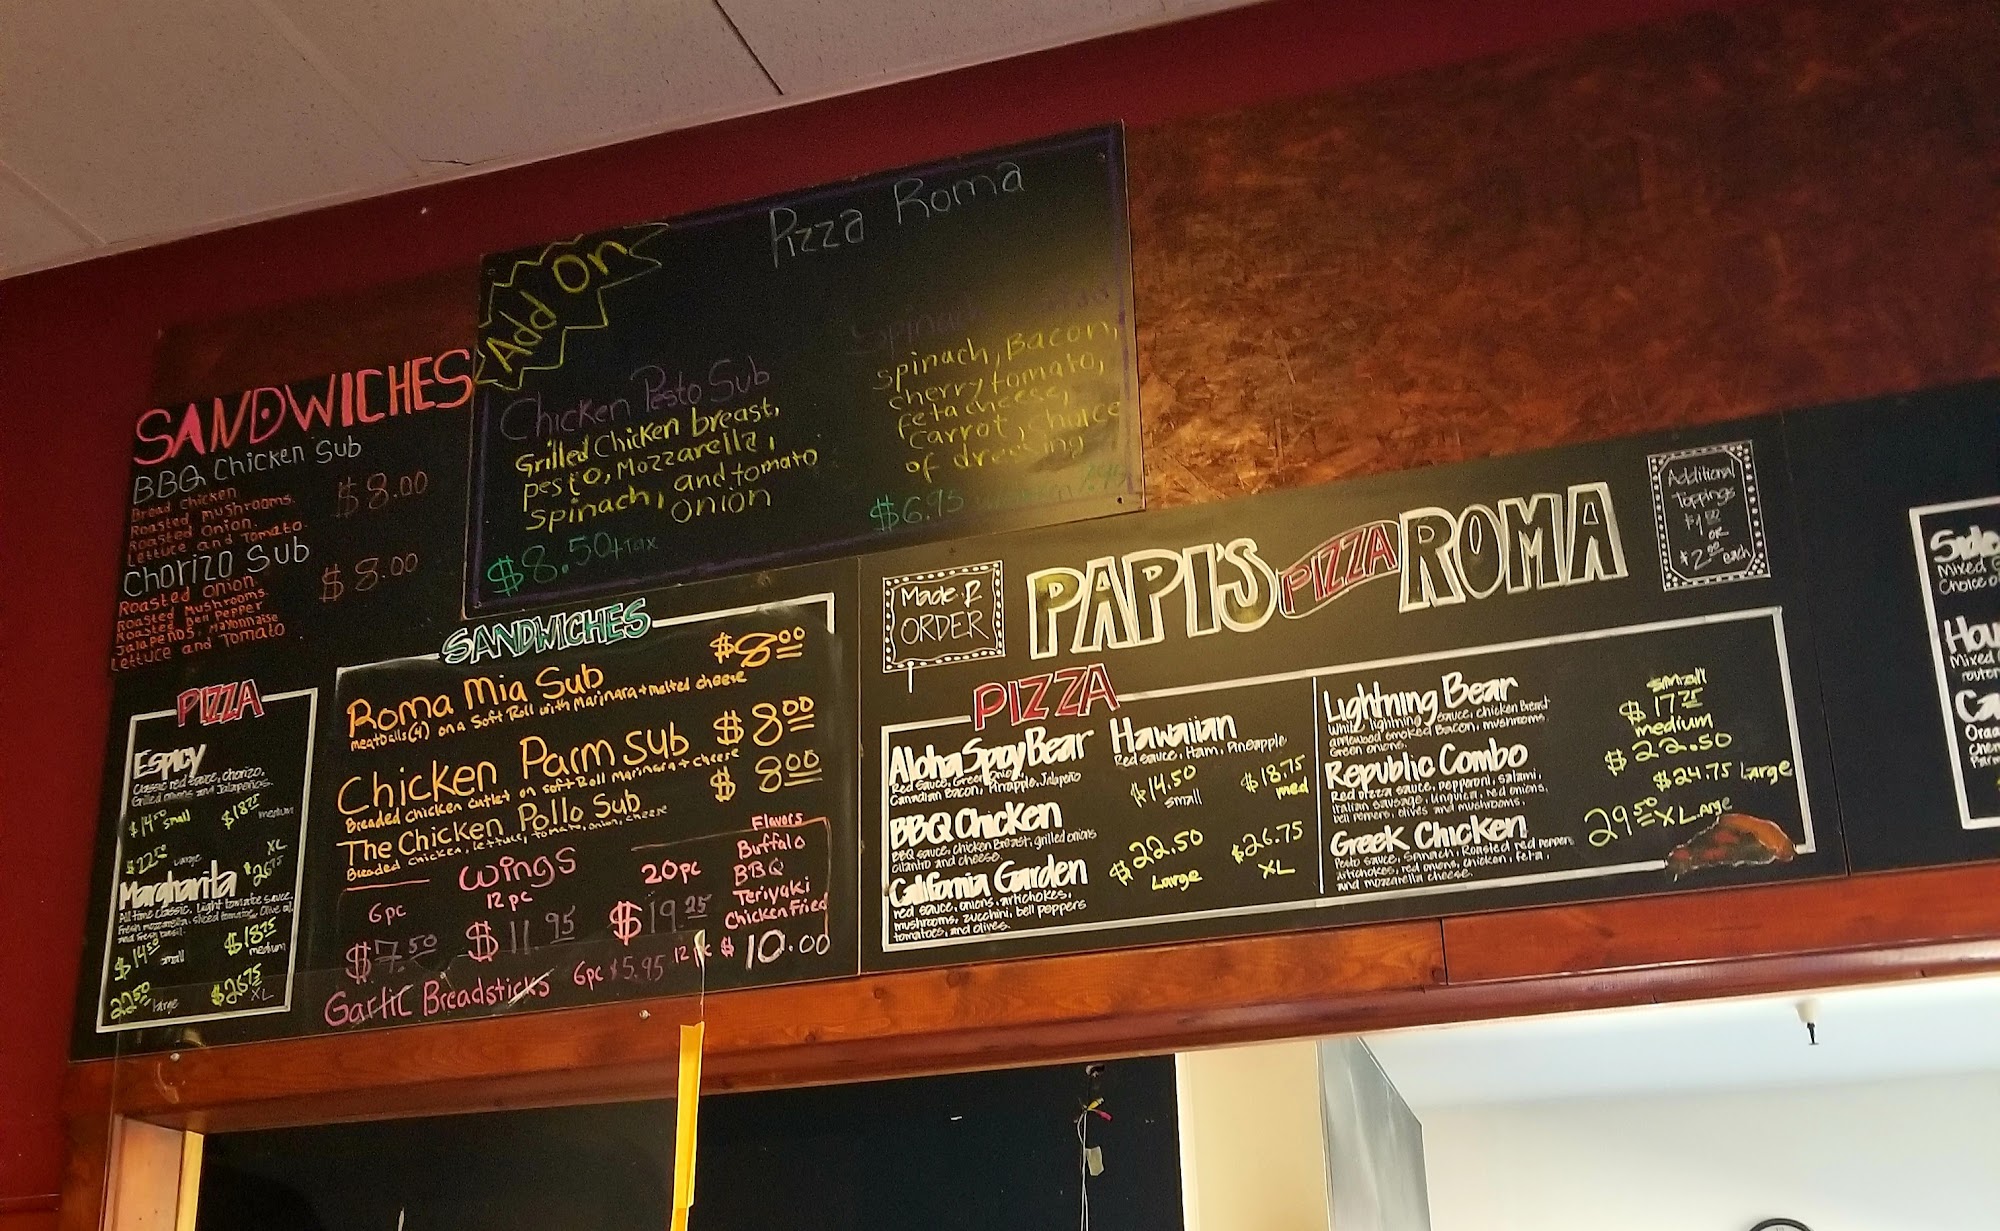 Add On
Pizza Roma
Chicken Pesto Sub
Grilled Chicken breast,
pesto, Mozzarella,
Spinach, and tomato
onion
$8.50+tax
spinach, Bacon,
cherry tomato,
feta cheese,
carrot, choice
of dressing
$6.95
SANDWICHES
BBQ Chicken Sub
Bread Chicken
Roasted, mushrooms.
Roasted onion.
Lettuce and Tomato.
$8.00
Chorizo Sub
Roasted onion.
Roasted Mushrooms.
Roasted Bell Pepper
Jalapenos, Mayonnaise
Lettuce and Tomato
$8.00
PIZZA
Espicy
Classic red sauce, chorizo,
Grilled onions and Jalapeños.
$14.50 small $18.75 medium
$22.50 Large $26.75 XL
Margharita
All time classic, Light tomato sauce,
Fresh mozzarella, sliced tomatoe, Olive oil,
and fresh basil.
$14.50 small $18.75 medium
22.50 large $26.75 XL
SANDWICHES
Roma Mia Sub $8.00
meatballs(4) on a Soft Roll with Marinara + melted cheese
Chicken Parm Sub $8.00
Breaded chicken cutlet on soft Roll Marinara + cheese
The Chicken Pollo Sub $8.00
Breaded chicken, lettuce, tomato, onion, cheese
wings
6pc 12pc 20pc
$7.50 $11.95 $19.25
Flavors
Buffalo
BBQ
Teriyaki
Chicken Fried
Garlic Breadsticks 6pc $5.95 12pc $10.00
Made 2
ORDER
PAPI'S PIZZA ROMA
Additional
Toppings
$1.50
OR
$2.00 each
PIZZA
Aloha Spicy Bear
Red Sauce, Green Onion,
Canadian Bacon, Pinapple, Jalapeño
BBQ Chicken
BBQ sauce, chicken Breast, grilled onions
cilantro and cheese.
California Garden
red sauce, onions, artichokes,
mushrooms, zucchini, bell peppers
tomatoes, and olives.
Hawaiian
Red sauce, Ham, Pineapple
$14.50 small $18.75 med
$22.50 Large $26.75 XL
Lightning Bear
White lightning sauce, chicken Breast
applewood smoked Bacon, mushrooms
Green onions.
Republic Combo
Red pizza sauce, pepperoni, salami,
italian sausage, linguica, red onions,
bell peppers, olives and mushrooms.
Greek Chicken
Pesto sauce, Spinach, Roasted red peppers
artichokes, red onions, chicken, feta,
and mozzarella cheese.
small
$17.25
medium
$22.50
$24.75 Large
29.50 XLarge
Side
Mixed
Choice o
Hou
Mixed
Ca